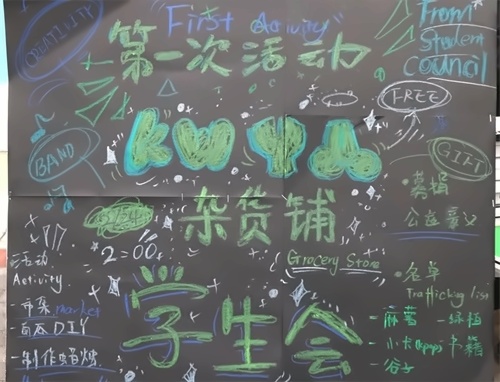 CREATIVITY
"First Activity"
From
Student
Council
第一次活动
FREE
BAND
GIFT
杂货铺
Grocery Store
2=00
学生会
活动
Activity
- 市集 market
DIY
- 制作蜡烛
· 募捐
公益意义
· 名单
Trafficking list
- 麻薯
- 绿植
- 小卡
- 书籍
- 谷子